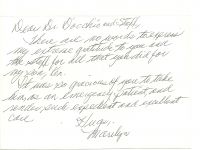 Dear Dr. Bocchi and Staff,
There are no words to express
my extreme gratitude to you and
the staff for all that you did for
my son,
It was so gracious of you to take
him as an emergency patient and
render such expedient and excellent
care.
Hugs,
Marilyn